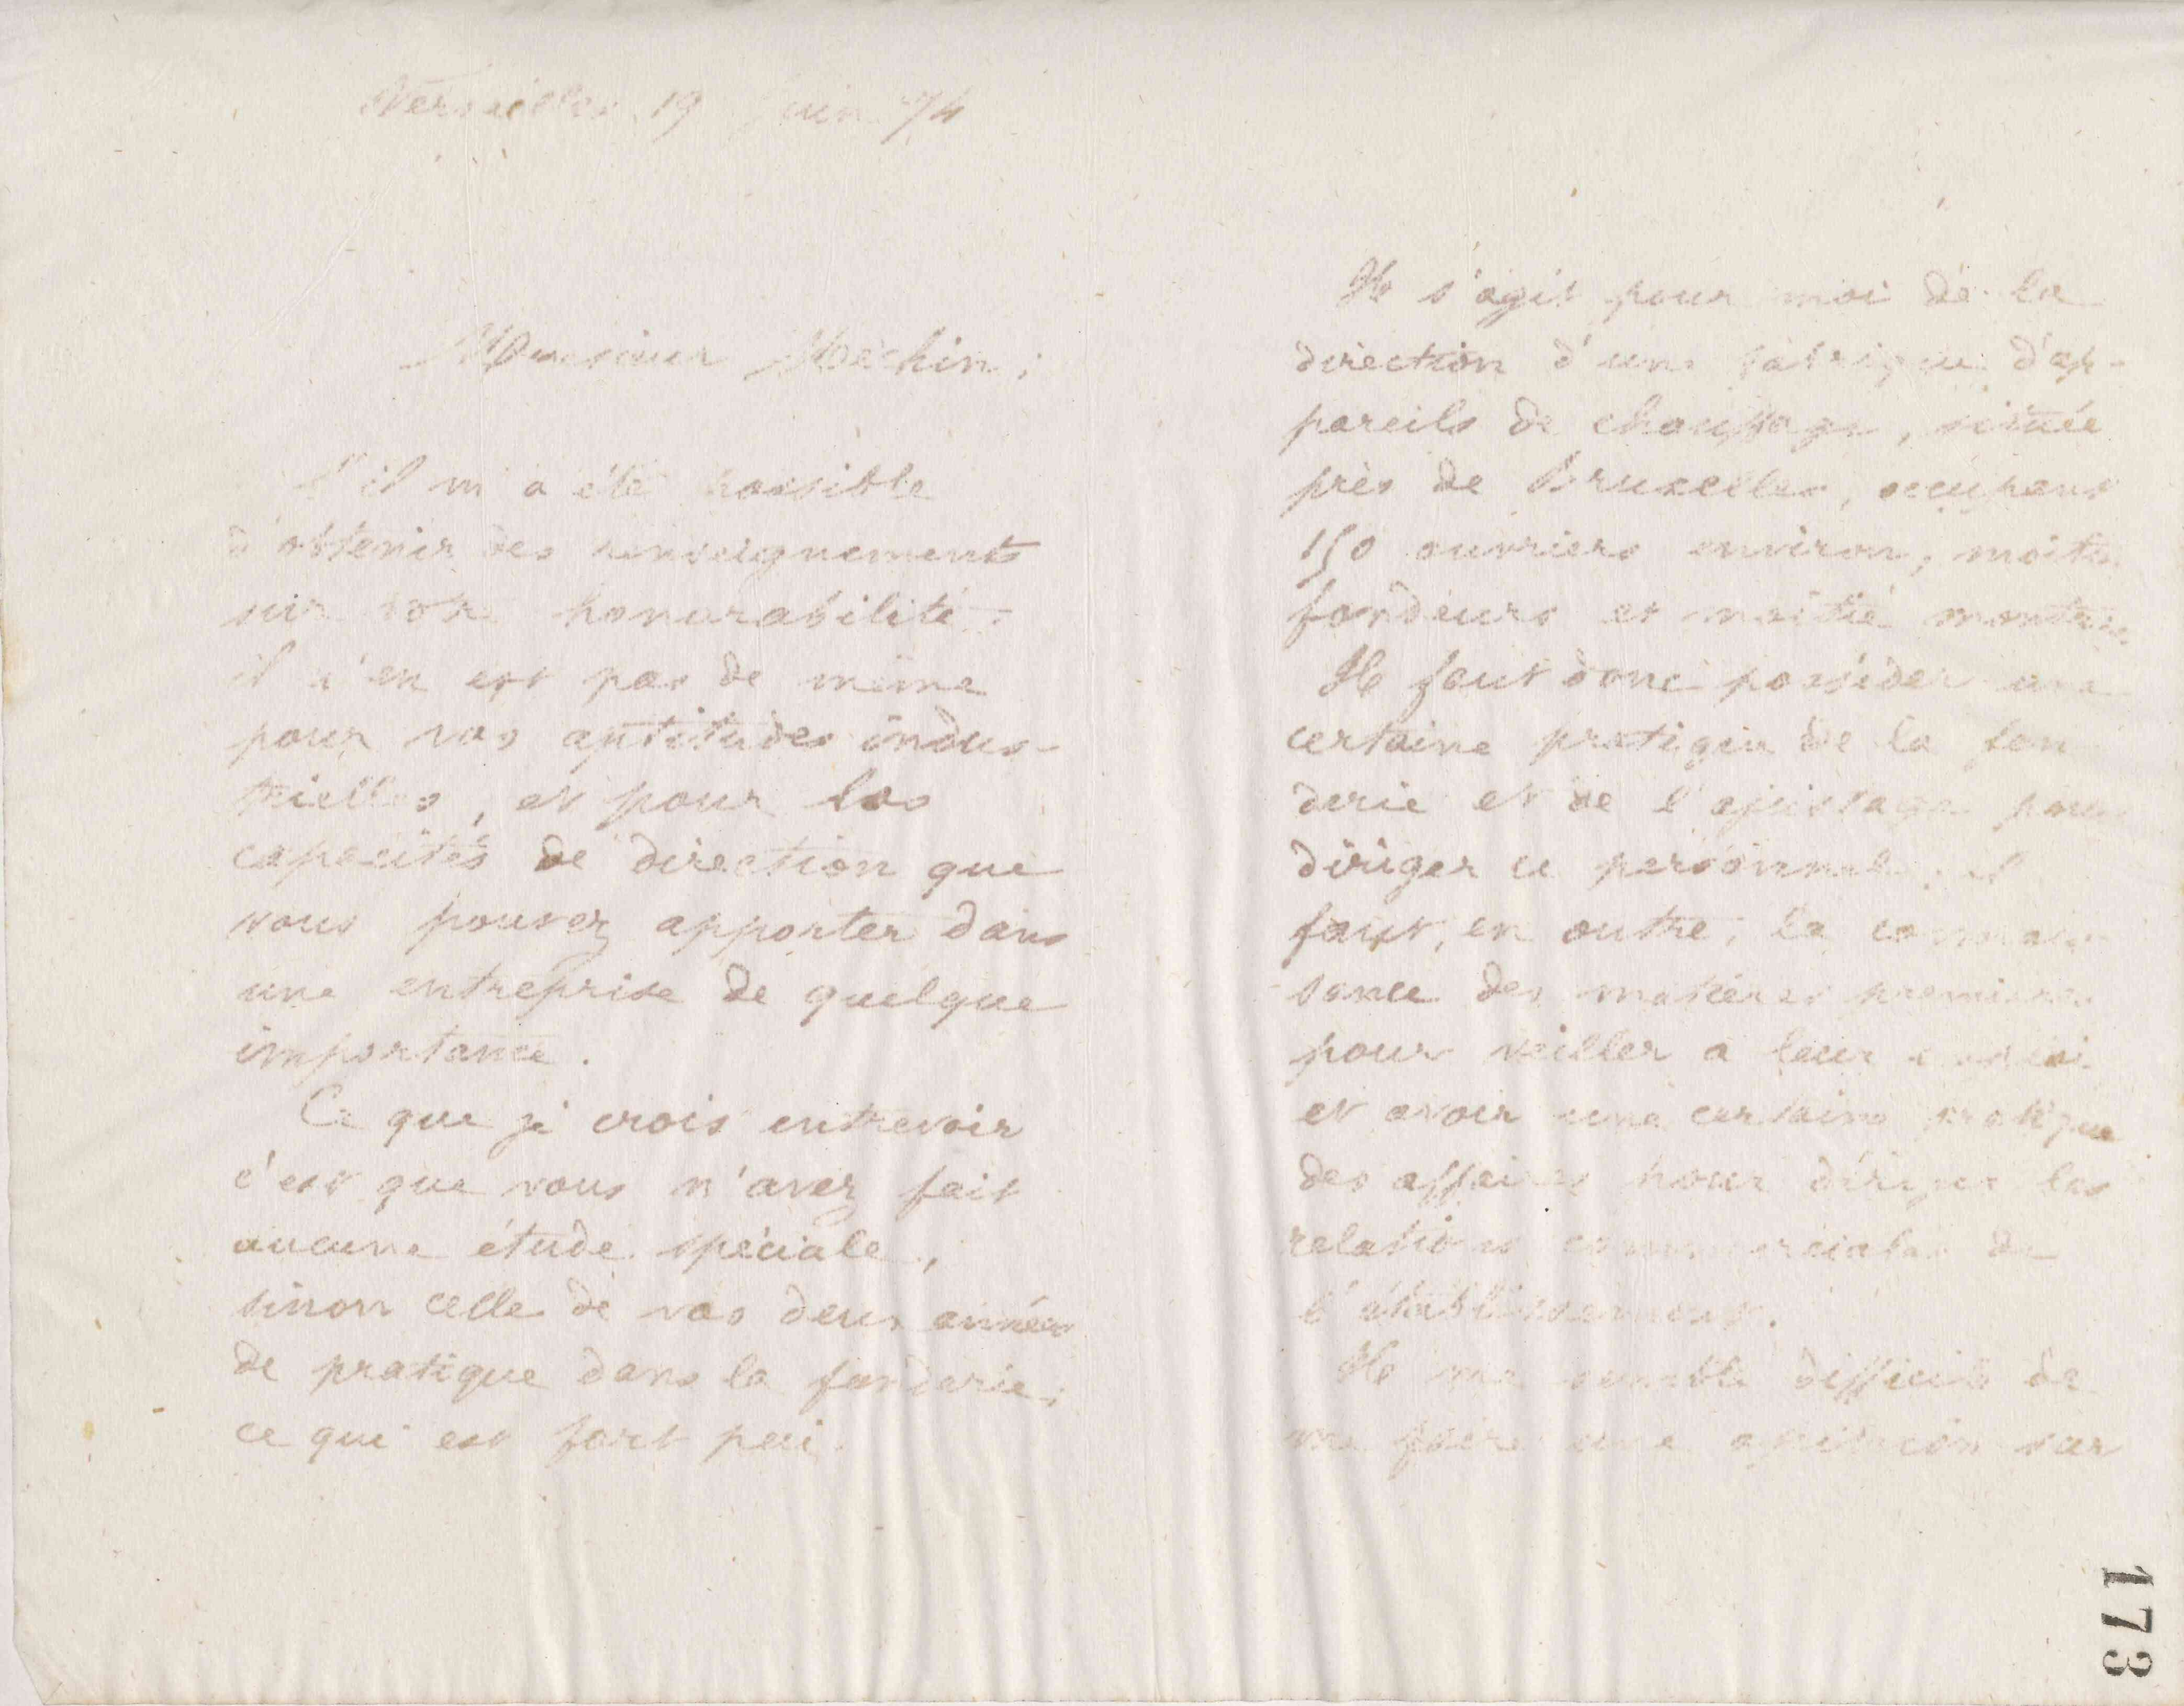 Versailles 19 Juin 74
Monsieur Méchin;
S'il m'a été possible
d'obtenir des renseignements
sur votre honorabilité,
il n'en est pas de même
pour vos aptitudes indus-
trielles, et pour les
capacités de direction que
vous pouvez apporter dans
une entreprise de quelque
importance.
Ce que je crois entrevoir
c'est que vous n'avez fait
aucune étude spéciale,
sinon celle de vos deux années
de pratique dans la fonderie;
ce qui est fort peu.
Il s'agit pour moi de la
direction d'une fabrique d'ap-
pareils de chauffage, située
près de Bruxelles, occupant
150 ouvriers environ, moitié
fondeurs et moitié monteurs.
Il faut donc posséder une
certaine pratique de la fon
derie et de l'ajustage pour
diriger ce personnel; il
faut, en outre, la connais-
sance des matières premières
pour veiller à leur emploi
et avoir une certaine pratique
des affaires pour diriger les
relations commerciales de
l'établissement.
Il me semble difficile de
me faire une opinion sur
173